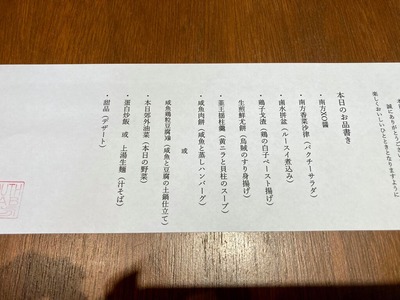 誠にありがとうござい
楽しくおいしいひとときとなりますように
本日のお品書き
・南方XO醤
・南方香菜沙律（パクチーサラダ）
・鹵水拼盆（ルースイ煮込み）
・鶏子戈渣（鶏の白子ペースト揚げ）
生煎鮮尤餅（烏賊のすり身揚げ）
・韮王揺柱羹（黄ニラと貝柱のスープ）
・咸魚肉餅（咸魚と蒸しハンバーグ）
或
咸魚鶏粒豆腐煲（咸魚と豆腐の土鍋仕立て）
・本日郊外油菜（本日の野菜）
・蛋白炒飯 或 上湯生麺（汁そば）
・甜品（デザート）